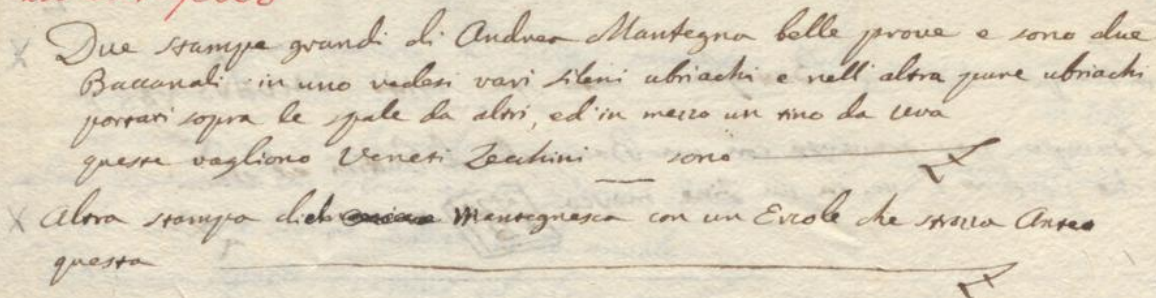 Due stampe grandi di Andrea Mantegna belle prove e sono due
Baccanali in uno vedesi vari sileni ubriachi e nell'altra pure ubriachi
portati sopra le spale da altri, ed'in mezzo un tino da Uva
queste vagliono Veneti Zecchini sono
X Altra stampa Mantegnesca con un Ercole che strozza Anteo
questa